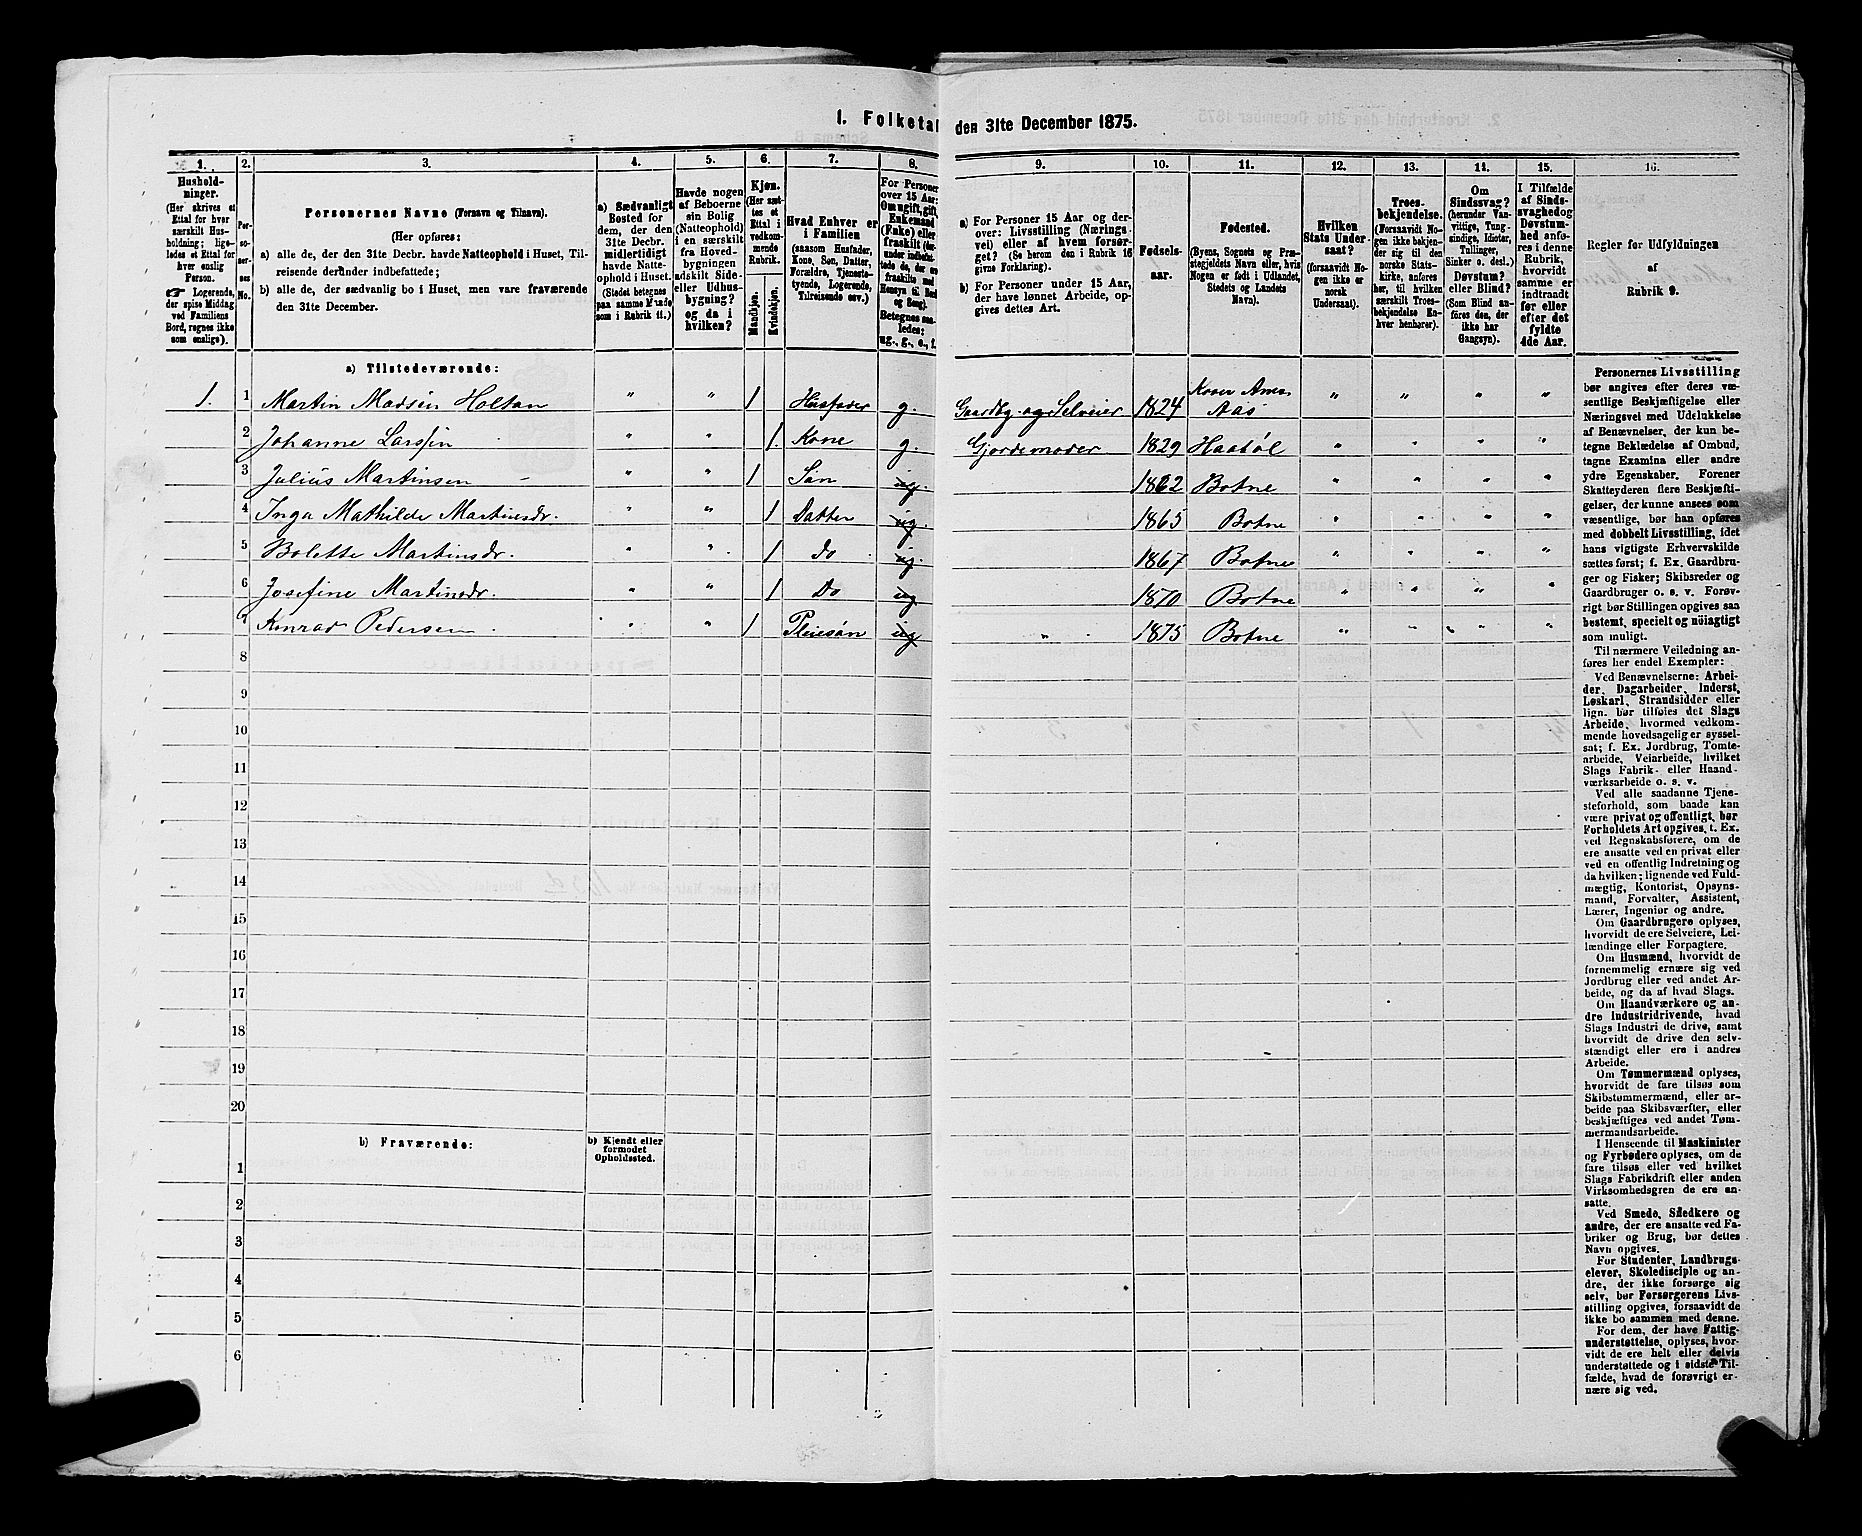 1. Folketal den 31te December 1875.
1. 2. 3. 4. 5. 6. 7. 8. 9. 10. 11. 12. 13. 14. 15. 16.
Hushold-
ninger.
(Her skrives et
Ettal for hver
særskilt Hus-
holdning; lige-
ledes et Ettal
for hver
enslig
Person.
☞ Logerende,
der spise Middag
ved Familiens
Bord, regnes ikke
som enslige).
Per-
so-
ner-
nes
No.
Personernes Navne (Fornavn og Tilnavn).
(Her opføres:
a) alle de, der den 31te Decbr. havde Natteophold i Huset, Til-
reisende derunder indbefattede;
b) alle de, der sædvanlig bo i Huset, men vare fraværende
den 31te December.
a) Sædvanligt
Bosted for
dem, der den
31te Decbr.
midlertidigt
havde Natte-
ophold i Huset.
(Stedet betegnes
paa samme Maade
som i Rubrik 11.)
Havde nogen
af Beboerne
sin Bolig
(Natteophold)
i en særskilt
fra Hoved-
bygningen
adskilt Side-
eller Udhus-
bygning?
og da i
hvilken?
Kjøn.
(Her sæt-
tes et
Ettal i
vedkom-
mende
Rubrik.
Mandkjøn.
Kvindekjøn.
Hvad Enhver er
i Familien
(saasom Husfader,
Kone, Søn, Datter,
Forældre, Tjeneste-
tyende, Logerende,
Tilreisende osv.)
For Personer
over 15 Aar:
Om ugift, gift,
Enkemand
(Enke) eller
fraskilt
Betegnes saa-
ledes:
ug., g., e., f.
a) For Personer 15 Aar og der-
over: Livsstilling (Nærings-
vei) eller af hvem forsør-
get? (Se herom den i Rubrik 16
givne Forklaring).
b) For Personer under 15 Aar,
der have lønnet Arbeide, op-
gives dettes Art.
Fødsels-
aar.
Fødested.
(Byens, Sognets og Præ-
stegjeldets Navn eller, hvis
Nogen er født i Udlandet,
Stedets og Landets
Navn).
Hvilken
Stats Under-
saat?
(forsaavidt No-
gen ikke er
norsk
Undersaat).
Troes-
bekjendelse.
(Forsaavidt No-
gen ikke bekjen-
der sig til den
norske Stats-
kirke, anføres
her, til hvilken
særskilt Troes-
bekjendelse En-
hver henhører).
Om
Sindssvag?
(herunder Van-
vittige, Tung-
sindige, Idioter,
Tullinger,
Sinker o. desl.)
Døvstum?
eller Blind?
(Som Blind an-
føres den, der
ikke har
Gangsyn).
I Tilfælde
af Sinds-
svaghed og
Døvstum-
hed anfø-
res i denne
Rubrik,
hvorvidt
samme er
indtraadt
før eller
efter det
fyldte
4de Aar.
Regler før Udfyldningen
af
Rubrik 9.
a) Tilstedeværende:
1. 1 Martin Madsen Holtan " " 1 Husfader g. Gaardbg. og Selveier 1824 Aas " " " "
2 Johanne Larssen " " 1. Kone g. Gjordemoder 1829 Haabøl " " " "
3 Julius Martinsen " " 1 Søn ug. 1862 Botne " " " "
4 Inga Mathilde Martinsdr. " " 1 Datter ug. 1865 Botne " " " "
5 Bolette Martinsdr. " " 1 Do ug. 1867 Botne " " " "
6 Josefine Martinsdr. " " 1 Do ug 1870 Botne " " " "
7 Konrad Pedersen " " 1 Pleiesøn ug " 1875 Botne " " " "
8
9
10
11
12
13
14
15
16
17
18
19
20
b) Fraværende:
b) Kjendt eller
formodet
Opholdssted.
1
2
3
4
5
6
Personernes Livsstilling
bør angives efter deres væ-
sentlige Beskjæftigelse eller
Næringsvei med Udelukkelse
af Benævnelser, der kun be-
tegne Beklædelse af Ombud,
tagne Examina eller andre
ydre Egenskaber. Forener
Skatteyderen flere Beskjæfti-
gelser, der kunne ansees som
væsentlige, bør han opføres
med dobbelt Livsstilling, idet
hans vigtigste Erhvervskilde
sættes først; f. Ex. Gaardbru-
ger og Fisker; Skibsreder og
Gaardbruger o. s. v. Forøv-
rigt bør Stillingen opgives saa
bestemt, specielt og nöiagtigt
som muligt.
Til nærmere Veiledning an-
føres her endel Exempler:
Ved Benævnelserne: Arbei-
der, Dagarbeider, Inderst,
Løskarl, Strandsidder eller
lign. bør tilføies det Slags
Arbeide, hvormed vedkom-
mende hovedsagelig er syssel-
sat; f. Ex. Jordbrug, Tomte-
arbeide, Veiarbeide, hvilket
Slags Fabrik- eller Haand-
værksarbeide o. s. v.
Ved alle saadanne Tjene-
steforhold, som baade kan
være privat og offentligt, bør
Forholdets Art opgives, t. Ex.
ved Regnskabsførere, om de
ere ansatte ved en privat eller
ved en offentlig Indretning og
da hvilken; lignende ved Fuld-
mægtig, Kontorist, Opsyns-
mand, Forvalter, Assistent,
Lærer, Ingeniør og andre.
Om Gaardbrugere oplyses,
hvorvidt de ere Selveiere, Lei-
lændinge eller Forpagtere.
Om Husmænd, hvorvidt de
fornemmelig ernære sig ved
Jordbrug eller ved andet Ar-
beide, og da af hvad Slags.
Om Haandværkere og an-
dre Industridrivende, hvad
Slags Industri de drive, samt
hvorvidt de drive den selv-
stændigt eller ere i andres
Arbeide.
Om Tømmermænd oplyses,
hvorvidt de fare tilsøs som
Skibstømmermænd, eller ar-
beide paa Skibsværfter, eller
beskjæftiges ved andet Tøm-
mermandsarbeide.
I Henseende til Maskinister
og Fyrbødere oplyses, om de
fare tilsøs eller ved hvilket
Slags Fabrikdrift eller anden
Virksomhedsgren de ere an-
satte.
Ved Smede, Snedkere og
andre, der ere ansatte ved Fa-
briker og Brug, bør dettes
Navn opgives.
For Studenter, Landbrugs-
elever, Skoledisciple og an-
dre, der ikke forsørge sig
selv, bør Forsørgerens Livs-
stilling opgives, forsaavidt de
ikke bo sammen med denne.
For dem, der have Fattig-
understøttelse, oplyses, hvor-
vidt de ere helt eller delvis
understøttede og i sidste Til-
fælde, hvad de forøvrigt er-
nære sig ved.